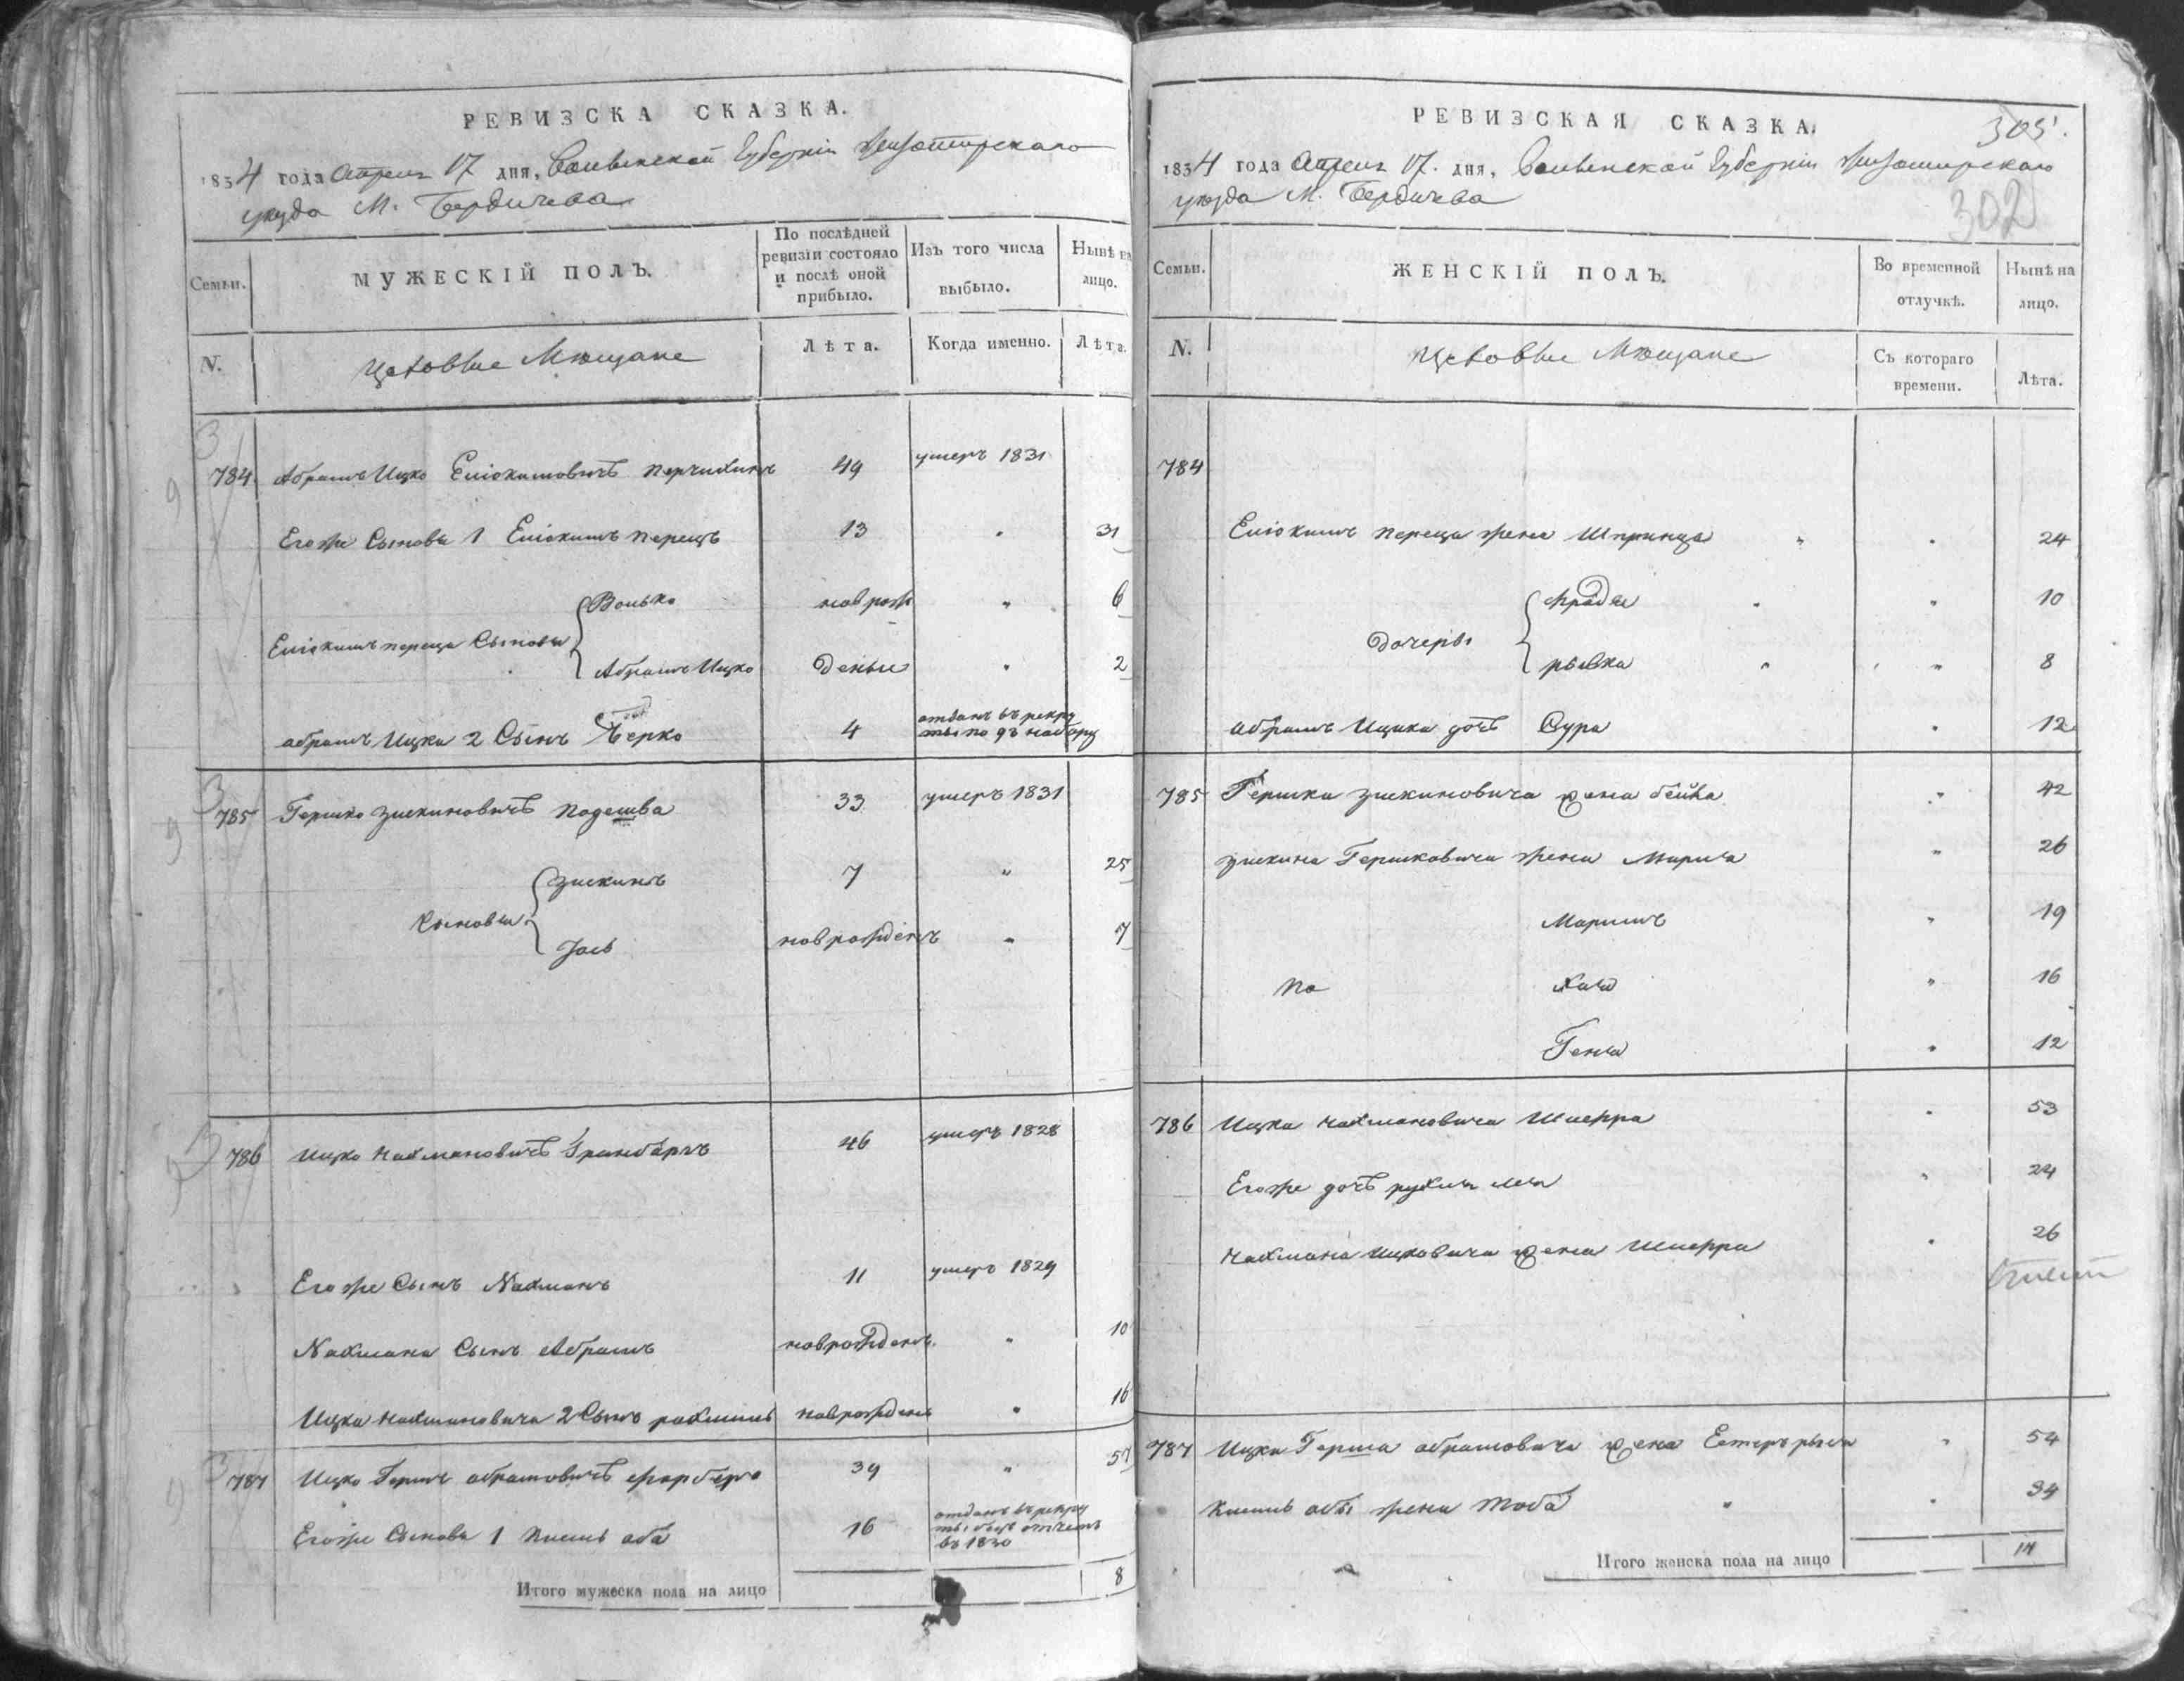 РЕВИЗСКА СКАЗКА.
1834 года Апреля 17 дня, Волынской Губерніи Житомирскаго
уезда М. Бердичева
Семьи.
МУЖЕСКІЙ ПОЛЪ.
По послѣдней ревизіи состояло и послѣ оной прибыло.
Изъ того числа выбыло.
Нынѣ на лицо.
N.
Цеховые Мещане
Лѣта.
Когда именно.
Лѣта.
784 Абрамъ Ицко Еліокимовичъ 49 умеръ 1831
Егоже Сыновья 1 Еліокимъ перецъ 13 31
Волько новрож 6
Еліокимъ переца Сыновья
Абрамъ Ицко денъи 2
абрамъ Ицки 2 Сынъ Берко 4 отданъ въ рекру
ты по набору
785 Гершко зискиновичъ подешва 33 умеръ 1831
зискинъ 7 25
Сыновья
Іось новрожденъ 7
786 Ицко Нахмановичъ 46 умеръ 1828
Егоже Сынъ Нахманъ 11 умеръ 1829
Нахмана Сынъ Абрамъ новрожденъ 10
Ицка Нахмановича 2 Сынъ рахмиль новрожденъ 16
787 Ицко Гершъ абрамовичъ фарберъ 39 57
Егоже Сыновья 1 аба 16 отданъ въ рекру
ты
въ 1830
Итого мужеска пола на лицо 8
РЕВИЗСКАЯ СКАЗКА.
305.
1834 года Апреля 17. дня, Волынской Губерніи Житомирскаго
уезда М. Бердичева
302
Семьи.
ЖЕНСКІЙ ПОЛЪ.
Во временной отлучкѣ.
Нынѣ на лицо.
N.
Цеховые Мещане
Съ котораго времени.
Лѣта.
784
Еліокимъ переца жена Шпринца 24
Фрадя 10
дочеры
рывка 8
абрамъ Ицика дочь Сура 12
785 Гершка зискиновича жена бейла 42
зискина Гершковича жена Мирля 26
Маримъ 19
Хая 16
Геня 12
786 Ицка Нахмановича Шперра 53
Егоже дочь рухля лея 24
Нахмана Ицковича жена Шперра 26
787 Ицки Герша абрамовича жена Естеръ 54
абы жена Тоба 34
Итого женска пола на лицо 14